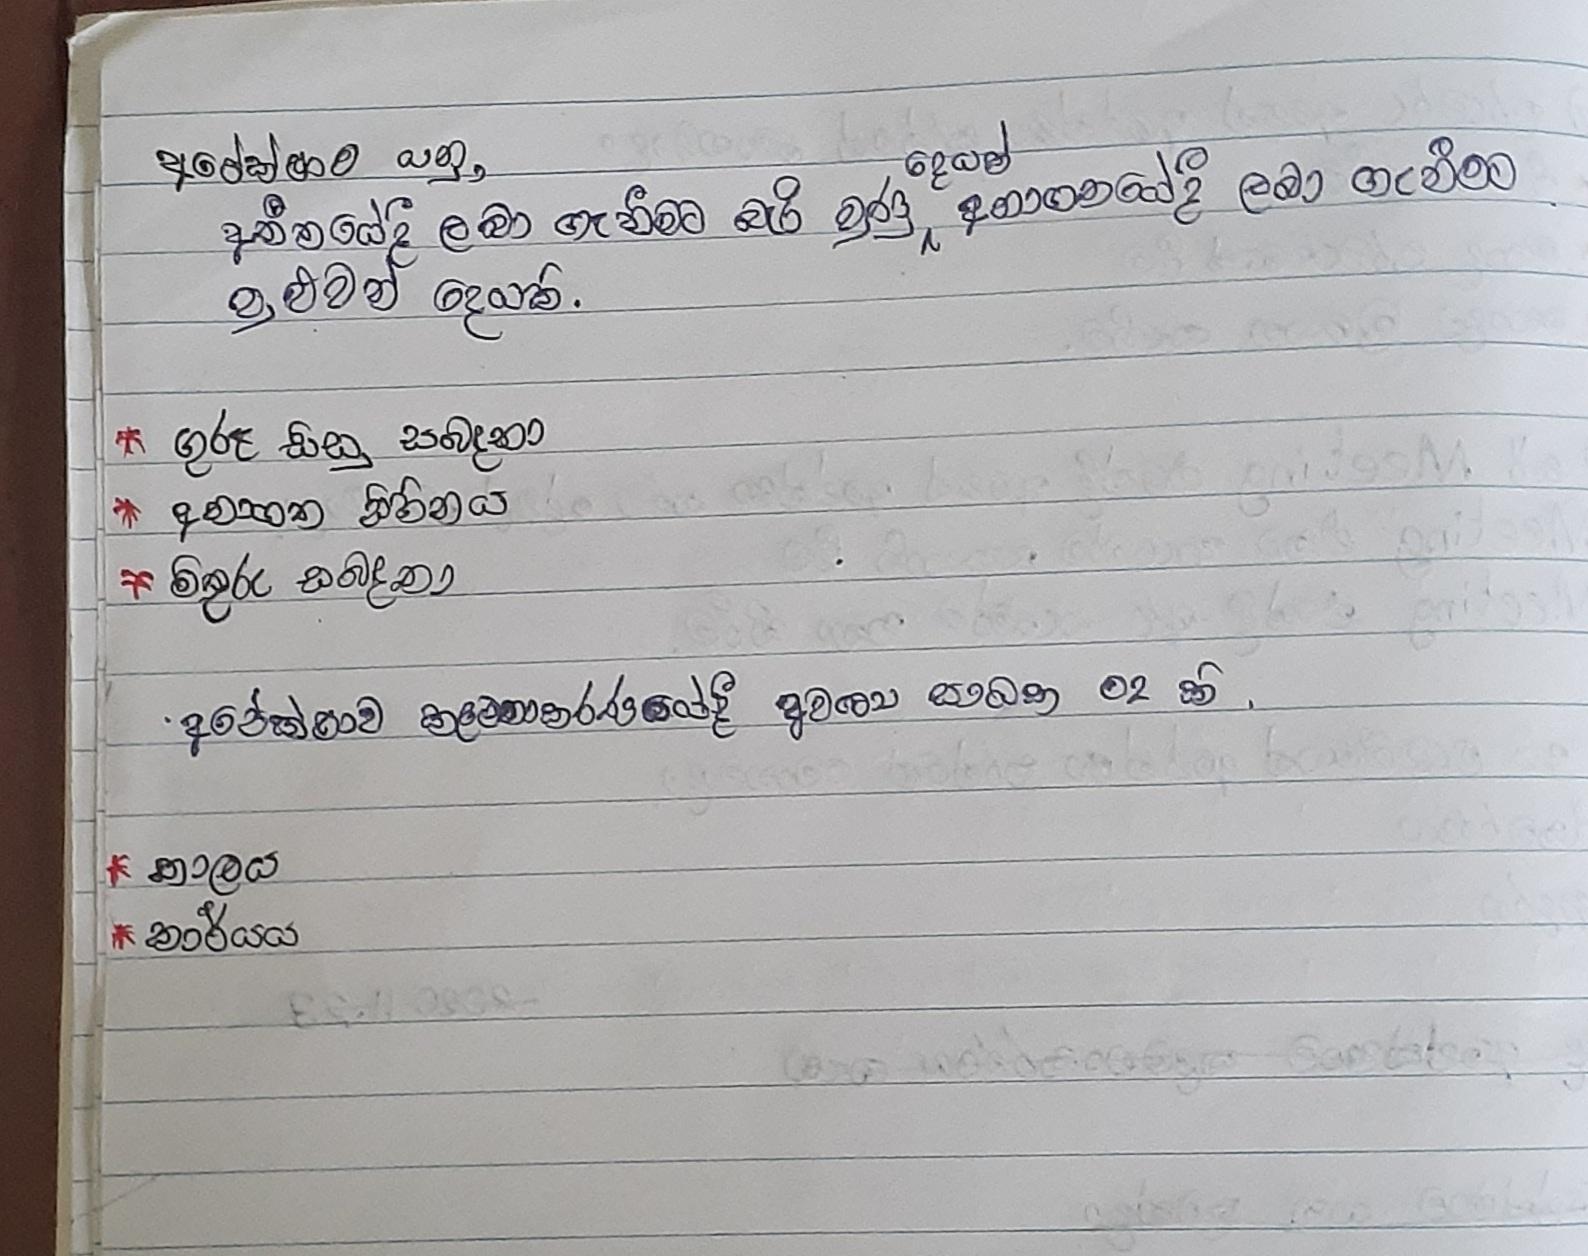 අපේක්ෂාව යනු,
අතීතයේදී ලබා ගැනීමට බැරි වුණු දෙයක් අනාගතයේදී ලබා ගැනීමට
පුළුවන් දෙයකි.
* ගුරු සිසු සබඳතා
* අවසාන සිහිනය
* මිතුරු සබඳතා
අපේක්ෂාව කළමනාකරණයේදී අවශ්‍ය සාධක 02 කි.
* කාලය
* කාර්යය